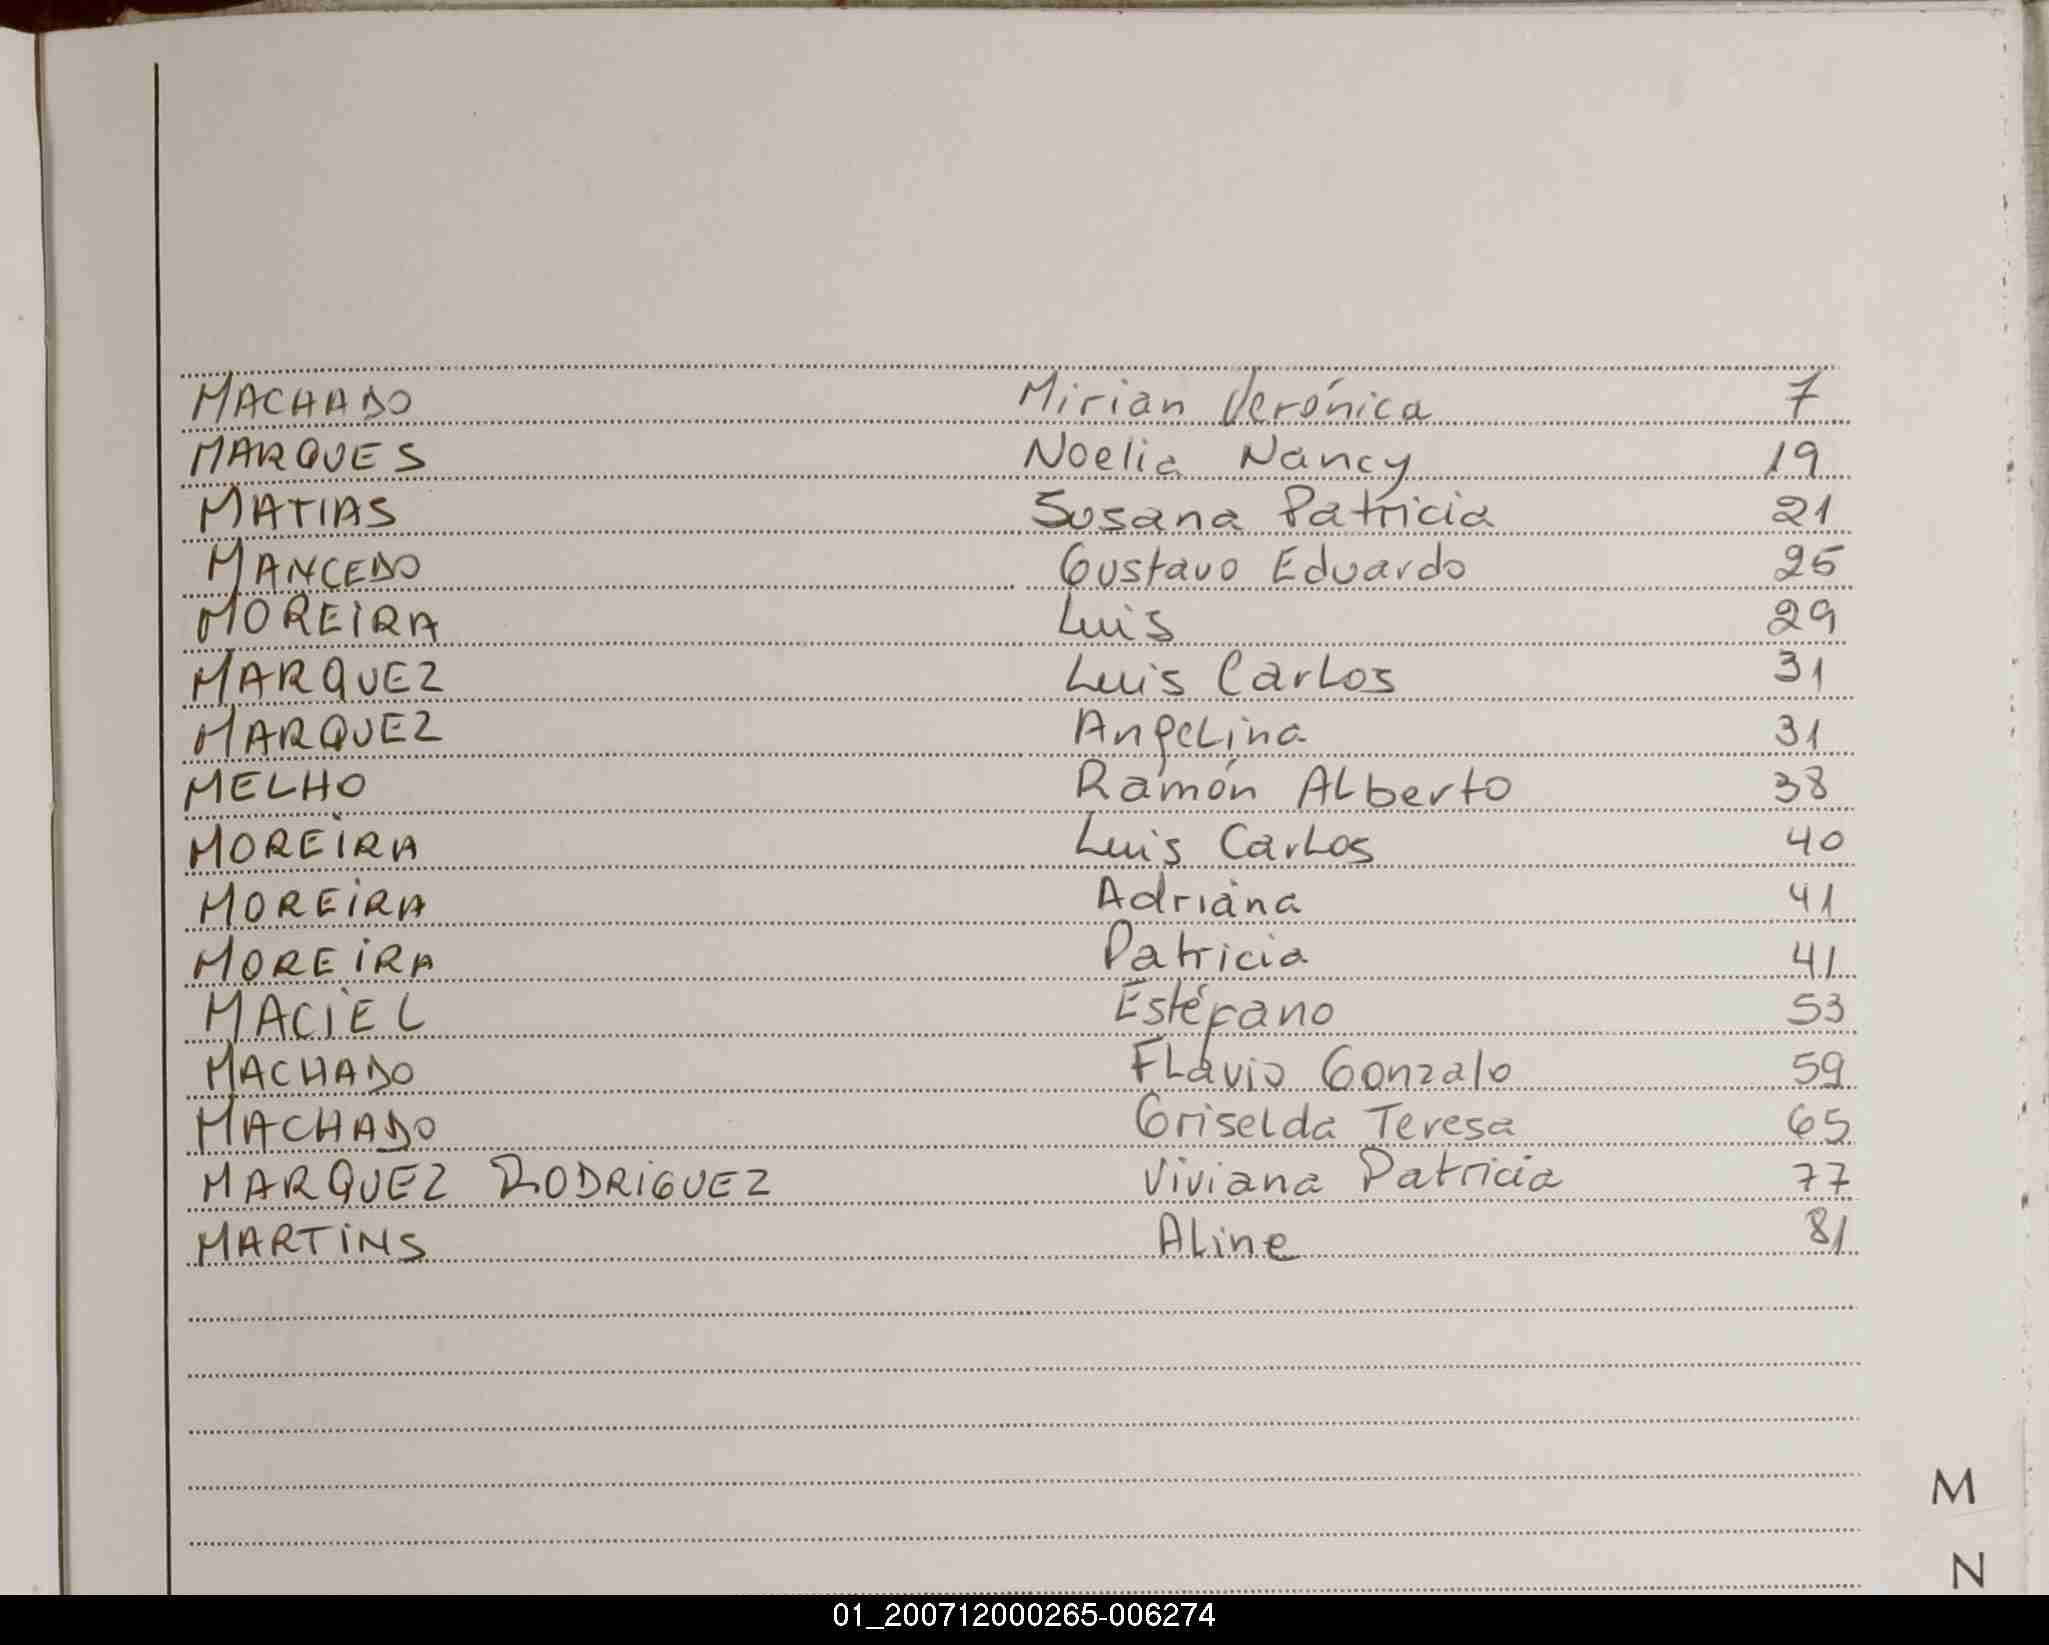 MACHADO Mirian Verónica 7
MARQUES Noelia Nancy 19
MATIAS Susana Patricia 21
MANCEDO Gustavo Eduardo 25
MOREIRA Luis 29
MARQUEZ Luis Carlos 31
MARQUEZ Angelina 31
MELHO Ramón Alberto 38
MOREIRA Luis Carlos 40
MOREIRA Adriana 41
MOREIRA Patricia 41
MACIEL Estéfano 53
MACHADO Flavio Gonzalo 59
MACHADO Griselda Teresa 65
MARQUEZ RODRIGUEZ Viviana Patricia 77
MARTINS Aline 81
M
N
01_200712000265-006274